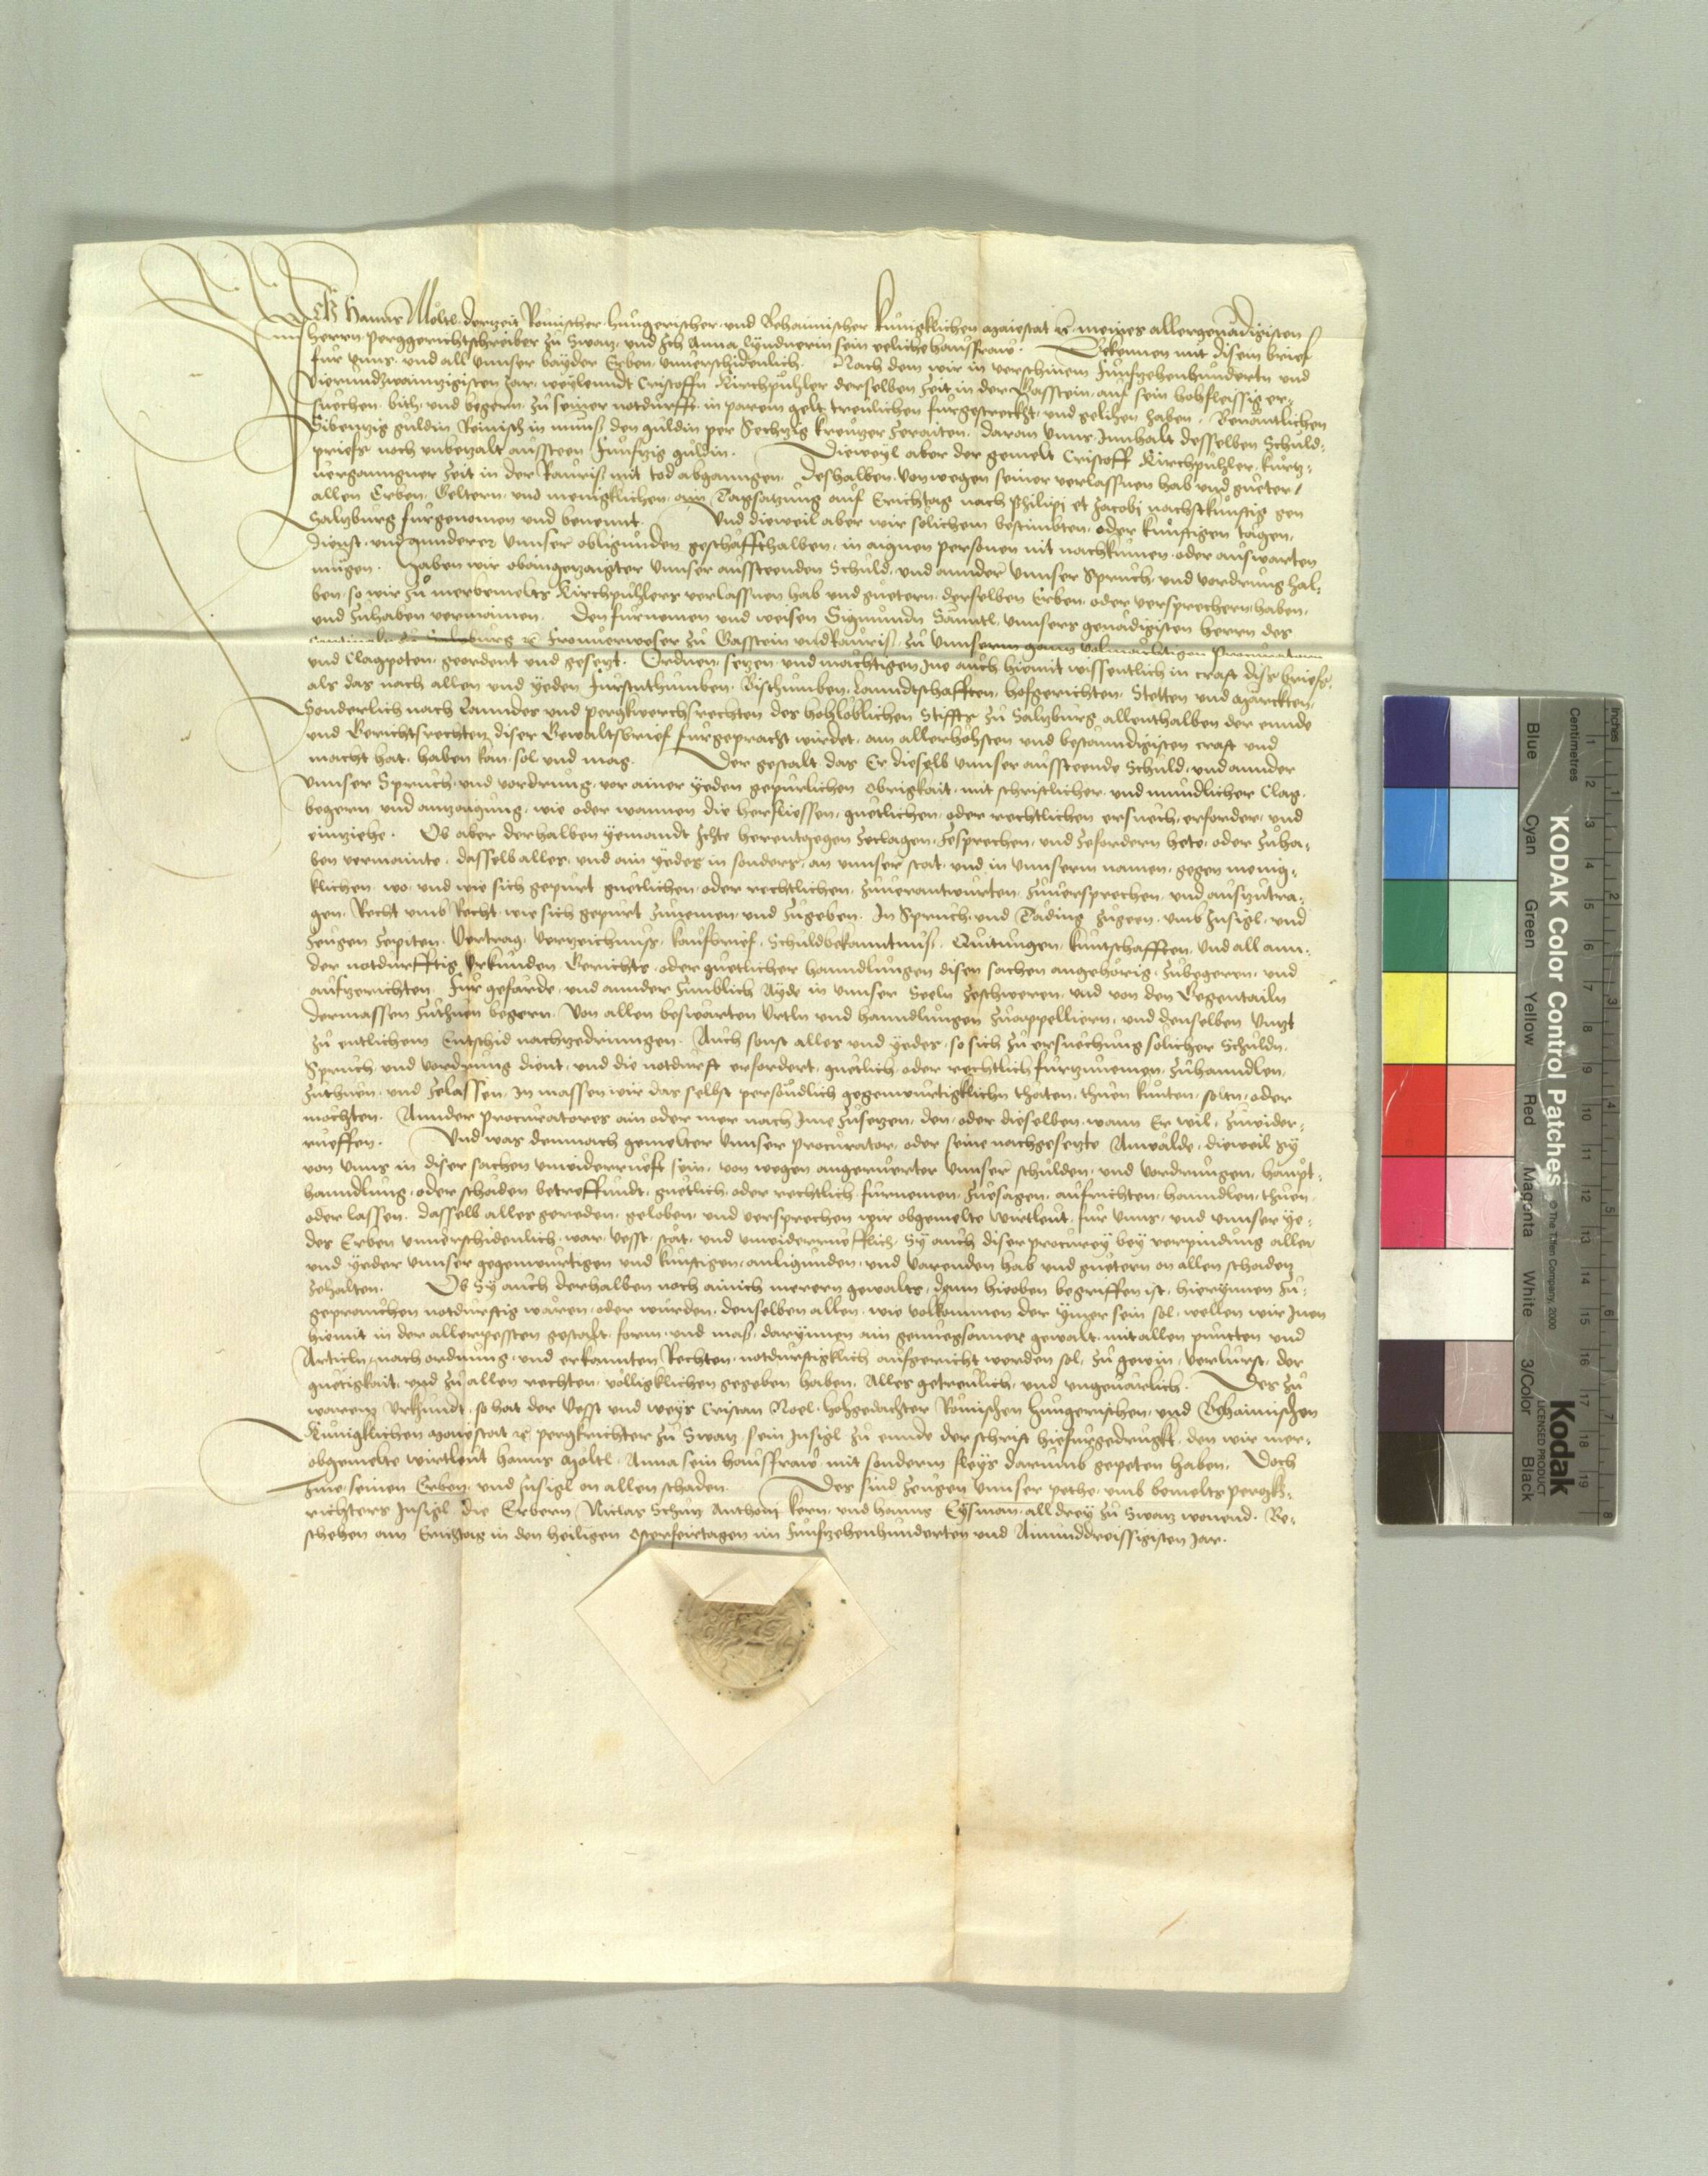 Ich Hanns Möltl derzeit Römischer Hungerischer und Behaimischer Kunigklichen Maiestat etc. meines allergenädigisten
Herrn Perggerichtschreiber zu Swatz, und Ich Anna Lynduerin sein eeliche hausfraw. Bekennen mit disem brief
fur unns und all unnser bayder Erben unverschidenlich. Nach dem wir in verschinem Funfzehenhundertn und
Vierundzwainzigisten Jar, weylenndt Cristoffn Kirchpuhler derselben Zeit in der Gasstein, auf sein hohfleissig er-
suechen, bith, und begern, zu seiner notdurfft in parem gelt treulichen furgestreckht, und gelihen haben. Benantlichen
Sibenzig guldin Reinisch in munss den guldin per Sechzig kreuzer zeraiten. daran unns Innhalt desselben Schuld-
priefs noch unbezalt aussteen Funfzig guldin. Dieweyl aber der gemelt Cristoff Kirchpuhler, kurtz-
vergangner Zeit in der Rauris mit tod abgangen, deshalben von wegen seiner verlassnen hab und gueter,
allen Erben, Geltern, und menigklichen, ain Tagsatzung auf Erichtag nach Philipi et Jacobi nachstkunftig gen
Salzburg furgenomen und benennt. Und dieweil aber wir solichem bestimbten, oder kunftigen tagen,
dienst, und annderer unnser obligunden geschaffthalben, in aignen personen nit nachkumen, oder auswarten
mugen. Haben wir obangezaigter unnser aussteenden Schuld, und annder unnser Spruch, und vordrung hal-
ben, so wir zu merbemelts Kirchpuhlers verlassnen hab und guetern, derselben Erben, oder versprechern haben,
und zuhaben vermainen. Den furnemen und weisen Sigmundn Sänntl, unnsers genädigisten herrn des
Salzburg etc. Fronverweser zu Gasstein und Rauris, zu unnserm ganz volmächtigen Procurator
und Clagpoten, geordent und gesetzt. Ordnen, setzen, und mächtigen Ine auch hiemit wissentlich in craft diss briefs,
als das nach allen und yeden Furstnthumben, Bisthumben, Lanndtschafften, hofgerichten, Stetten und Märckten,
Sonderlich nach Lanndes und pergkwerchsrechten des hohloblichen Stiffts zu Salzburg, allenthalben der ennde
und Gerichtsrechten diser Gewaltsbrief furgepracht wurdet, am allerhohsten und bestanndigisten craft und
macht hat, haben kan, sol und mag. Der gestalt, das Er dieselb unnser aussteende Schuld, und annder
unnser Spruch, und vordrung, vor ainer yeden gepurlichen Obrigkait, mit schriftlicher, und mundlicher Clag,
begern, und anzaigung, wie oder wannen die herfliessen, guetlichen, oder rechtlichen ersuech, erforder, und
einziehe. Ob aber derhalben yemandt Ichte herentgegen zeclagen, zesprechen, und zefordern hete, oder zuha-
ben vermainte, dasselb alles, und ain yedes in sonders, an unnser stat, und in unnserm namen, gegen menig-
klichen, wo, und wie sich gepurt guetlichen, oder rechtlichen, zuverantwurten, zuversprechen, und auszutra-
gen, Recht umb Recht, wie sich gepurt zunemen, und zugeben. In Spruch, und Täding zugeen, umb Insigl, und
Zeugen zepiten, Vertrag, verzeichnuss, kaufbrief, Schuldbekanntnuss, Quitungen, kuntschafften, und all ann-
der notdurfftig Urkunden, Gerichts, oder guetlicher hanndlungen disen sachen angehörig, zubegeren, und
aufzerichten. Fur geferde, und annder zimblich Ayde in unnser Seeln zeschweren, und von den Gegentailn
dermassen zuthuen begern. Von allen beswärten Urtln und hanndlungen zuappellieren, und denselben unzt
zu entlichem Entschid nachzedringen. Auch sonst alles und yedes, so sich zu ersuechung solicher Schuldn,
Spruch, und vordrung dient, und die notdurft erfordert, guetlich, oder rechtlich furzunemen, zuhanndlen,
zuthuen, und zelassen, in massen wir das selbst persöndlich gegenwurtigklichn thäten, thuen kunten, soltn, oder
mochten. Annder procuratores ain oder mer nach Ime zusetzen, den, oder dieselben, wann Er wil, zuwider-
rueffen. Und was demnach gemelter unnser procurator, oder seine nachgesetzte Anwälde, dieweil sy
von unns in diser sachen unwiderrueft sein, von wegen angerurter unnser schulden, und vordrungen, haupt-
hanndlung, oder schaden betreffundt, guetlich, oder rechtlich furnemen, zuesagen, aufrichten, hanndlen, thuen,
oder lassen, dasselb alles gereden, geloben, und versprechen wir obgemelte wirtleut, fur unns, und unnser ye-
des Erben unverschidenlich, war, vesst, stät, und unwiderruefflich, Sy auch diser procurey bey verpindung aller
und yeder unnser gegenwurtigen und kunftigen, anligunden, und varenden hab und guetern on allen schaden
zehalten. Ob Sy auch derhalben noch ainich merern gewalts, dann hieoben begriffen ist, hierynnen zu-
geprauchen notdurftig wären, oder wurden, denselben allen, wie volkommen der ymer sein sol, wellen wir Inen
hiemit in der allerpessten gestalt, form, und mass, darynnen ain genuegsamer gewalt, mit allen puncten und
Articln, nach ordnung, und erkannten Rechten, notdurftigklich aufgericht werden sol, zu gewin, verlurst, der
guetigkait, und zu allen rechten, volligklichen gegeben haben. Alles getreulich, und ungeuärlich. Des zu
warem Urkhundt, so hat der Vesst und weys Cristan Noel, hochgedachter Römischen Hungerischen, und Behaimischen
Kunigklichen Maiestat etc. pergkrichter zu Swatz, sein Insigl zu ennde der schrift hiefurgedruckt, den wir mer-
obgemelte wirtleut Hanns Möltl, Anna sein hausfraw mit sonderm fleys darumb gepeten haben, Doch
Ime, seinen Erben, und Insigl on allen schaden. Des sind zeugen unnser pethe, umb bemelts pergk-
richters Insigl, die Erbern Niclas Schutz, Anthoni Kern, und Hanns Eysman, all drey zu Swatz wonend. Be-
schehen am Erichtag in den heiligen Osterfeirtagen im Funfzehenhunderten und Ainunddreissigisten Jar.
KODAK Color Control Patches
© The Tiffen Company, 2000
Kodak
LICENSED PRODUCT
Blue
Cyan
Green
Yellow
Red
Magenta
White
3/Color
Black
Inches
Centimetres